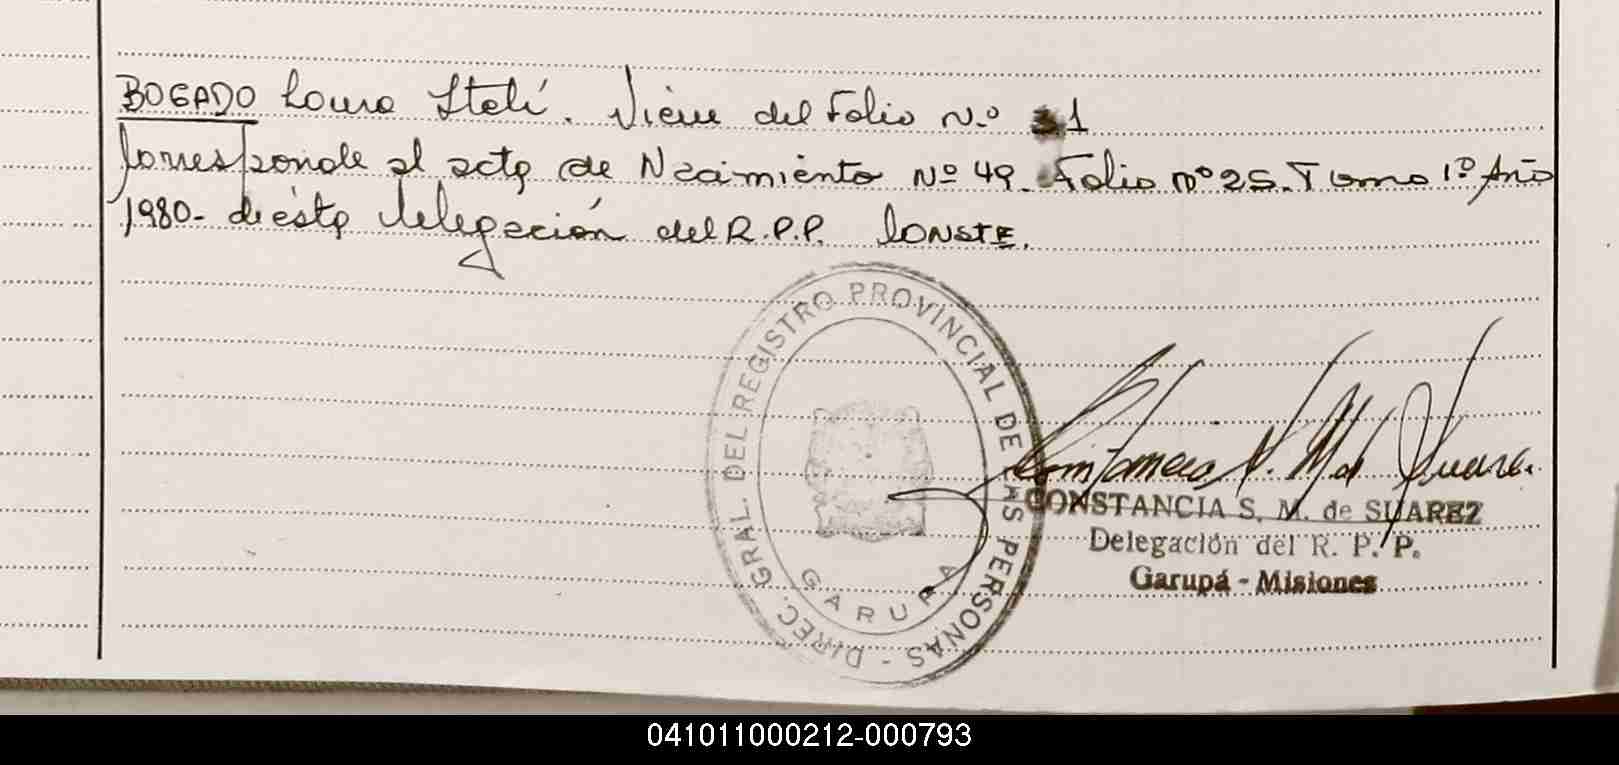 BOGADO Laura Itatí. Viene del Folio N.º 31
Corresponde al acta de Nacimiento Nº 49. Folio Nº 25. Tomo 1º Año
1980- de ésta Delegación del R.P.P. CONSTE.
DIREC. GRAL. DEL REGISTRO PROVINCIAL DE LAS PERSONAS -
GARUPA
Constancia S. M. de Suarez
CONSTANCIA S. M. de SUAREZ
Delegación del R. P. P.
Garupá - Misiones
041011000212-000793